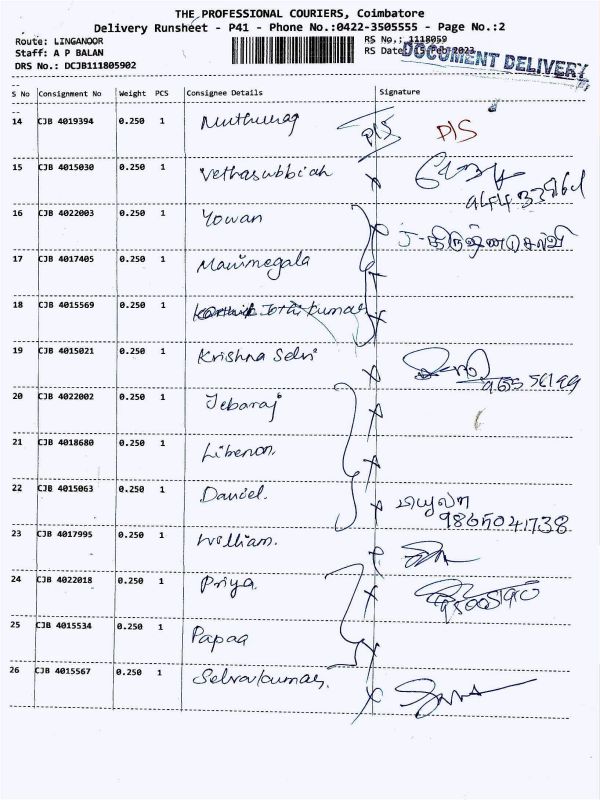 THE PROFESSIONAL COURIERS, Coimbatore
Delivery Runsheet - P41 - Phone No.:0422-3505555 - Page No.:2
Route: LINGANOOR
RS No.: 1118059
Staff: A P BALAN
RS Date: 15-Feb-2023
DOCUMENT DELIVERY
DRS No.: DCJB111805902
S No Consignment No Weight PCS Consignee Details Signature
14 CJB 4019394 0.250 1 Muthuraj D/S D/S
15 CJB 4015030 0.250 1 Vethasubbiah
16 CJB 4022003 0.250 1 Yowan J-கிருஷ்ண செல்வி
17 CJB 4017405 0.250 1 Manimegala
18 CJB 4015569 0.250 1 Karthick Jothikumar
19 CJB 4015021 0.250 1 Krishna Selvi
20 CJB 4022002 0.250 1 Jebaraj
21 CJB 4018680 0.250 1 Libenon
22 CJB 4015063 0.250 1 Daniel.
9865041738
23 CJB 4017995 0.250 1 William.
24 CJB 4022018 0.250 1 Priya
25 CJB 4015534 0.250 1 Papaa
26 CJB 4015567 0.250 1 Selvakumar.